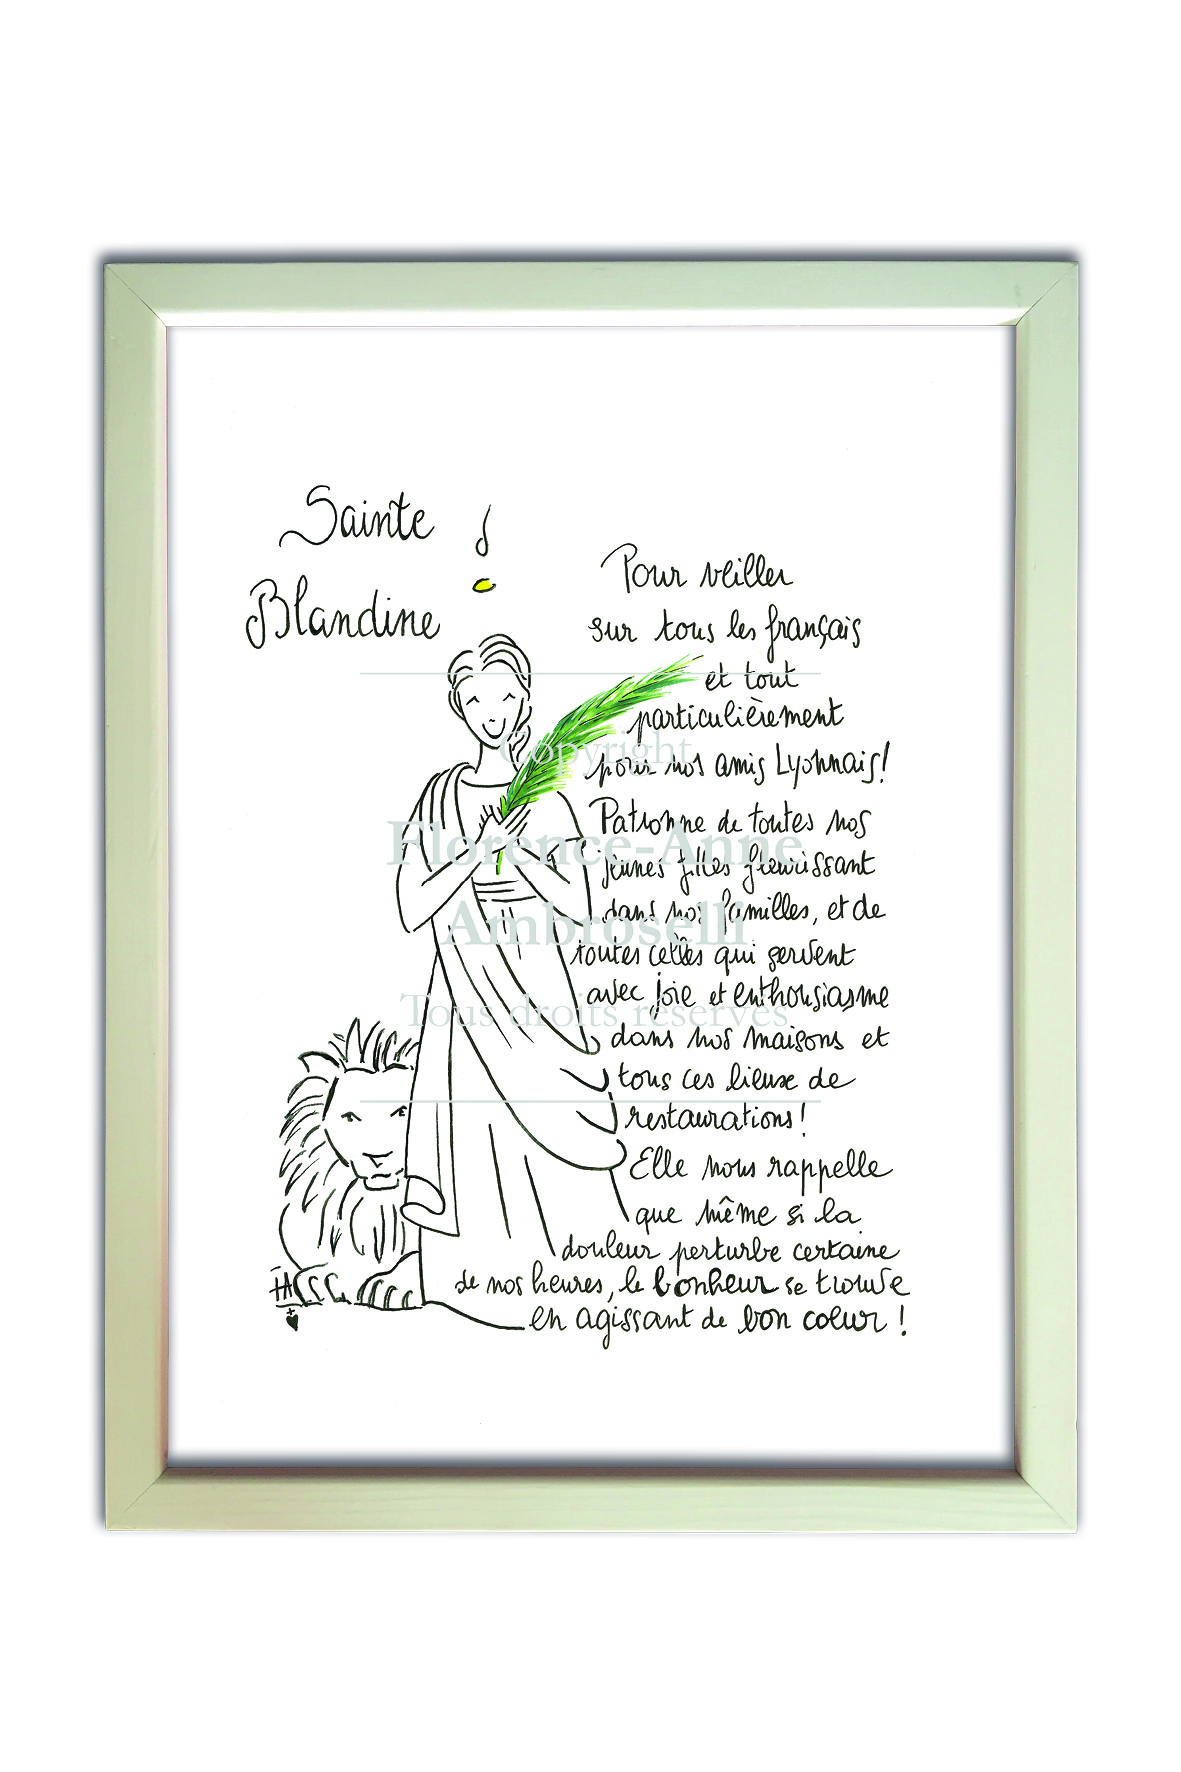 Sainte
Blandine
Pour veiller
sur tous les français
et tout
particulièrement
pour nos amis Lyonnais!
Patronne de toutes nos
jeunes filles fleurissant
dans nos familles, et de
toutes celles qui servent
avec joie et enthousiasme
dans nos maisons et
tous ces lieux de
restaurations!
Elle nous rappelle
que même si la
douleur perturbe certaine
de nos heures, le bonheur se trouve
en agissant de bon coeur !
FA
Copyright
Florence-Anne
Ambroselli
Tous droits réservés